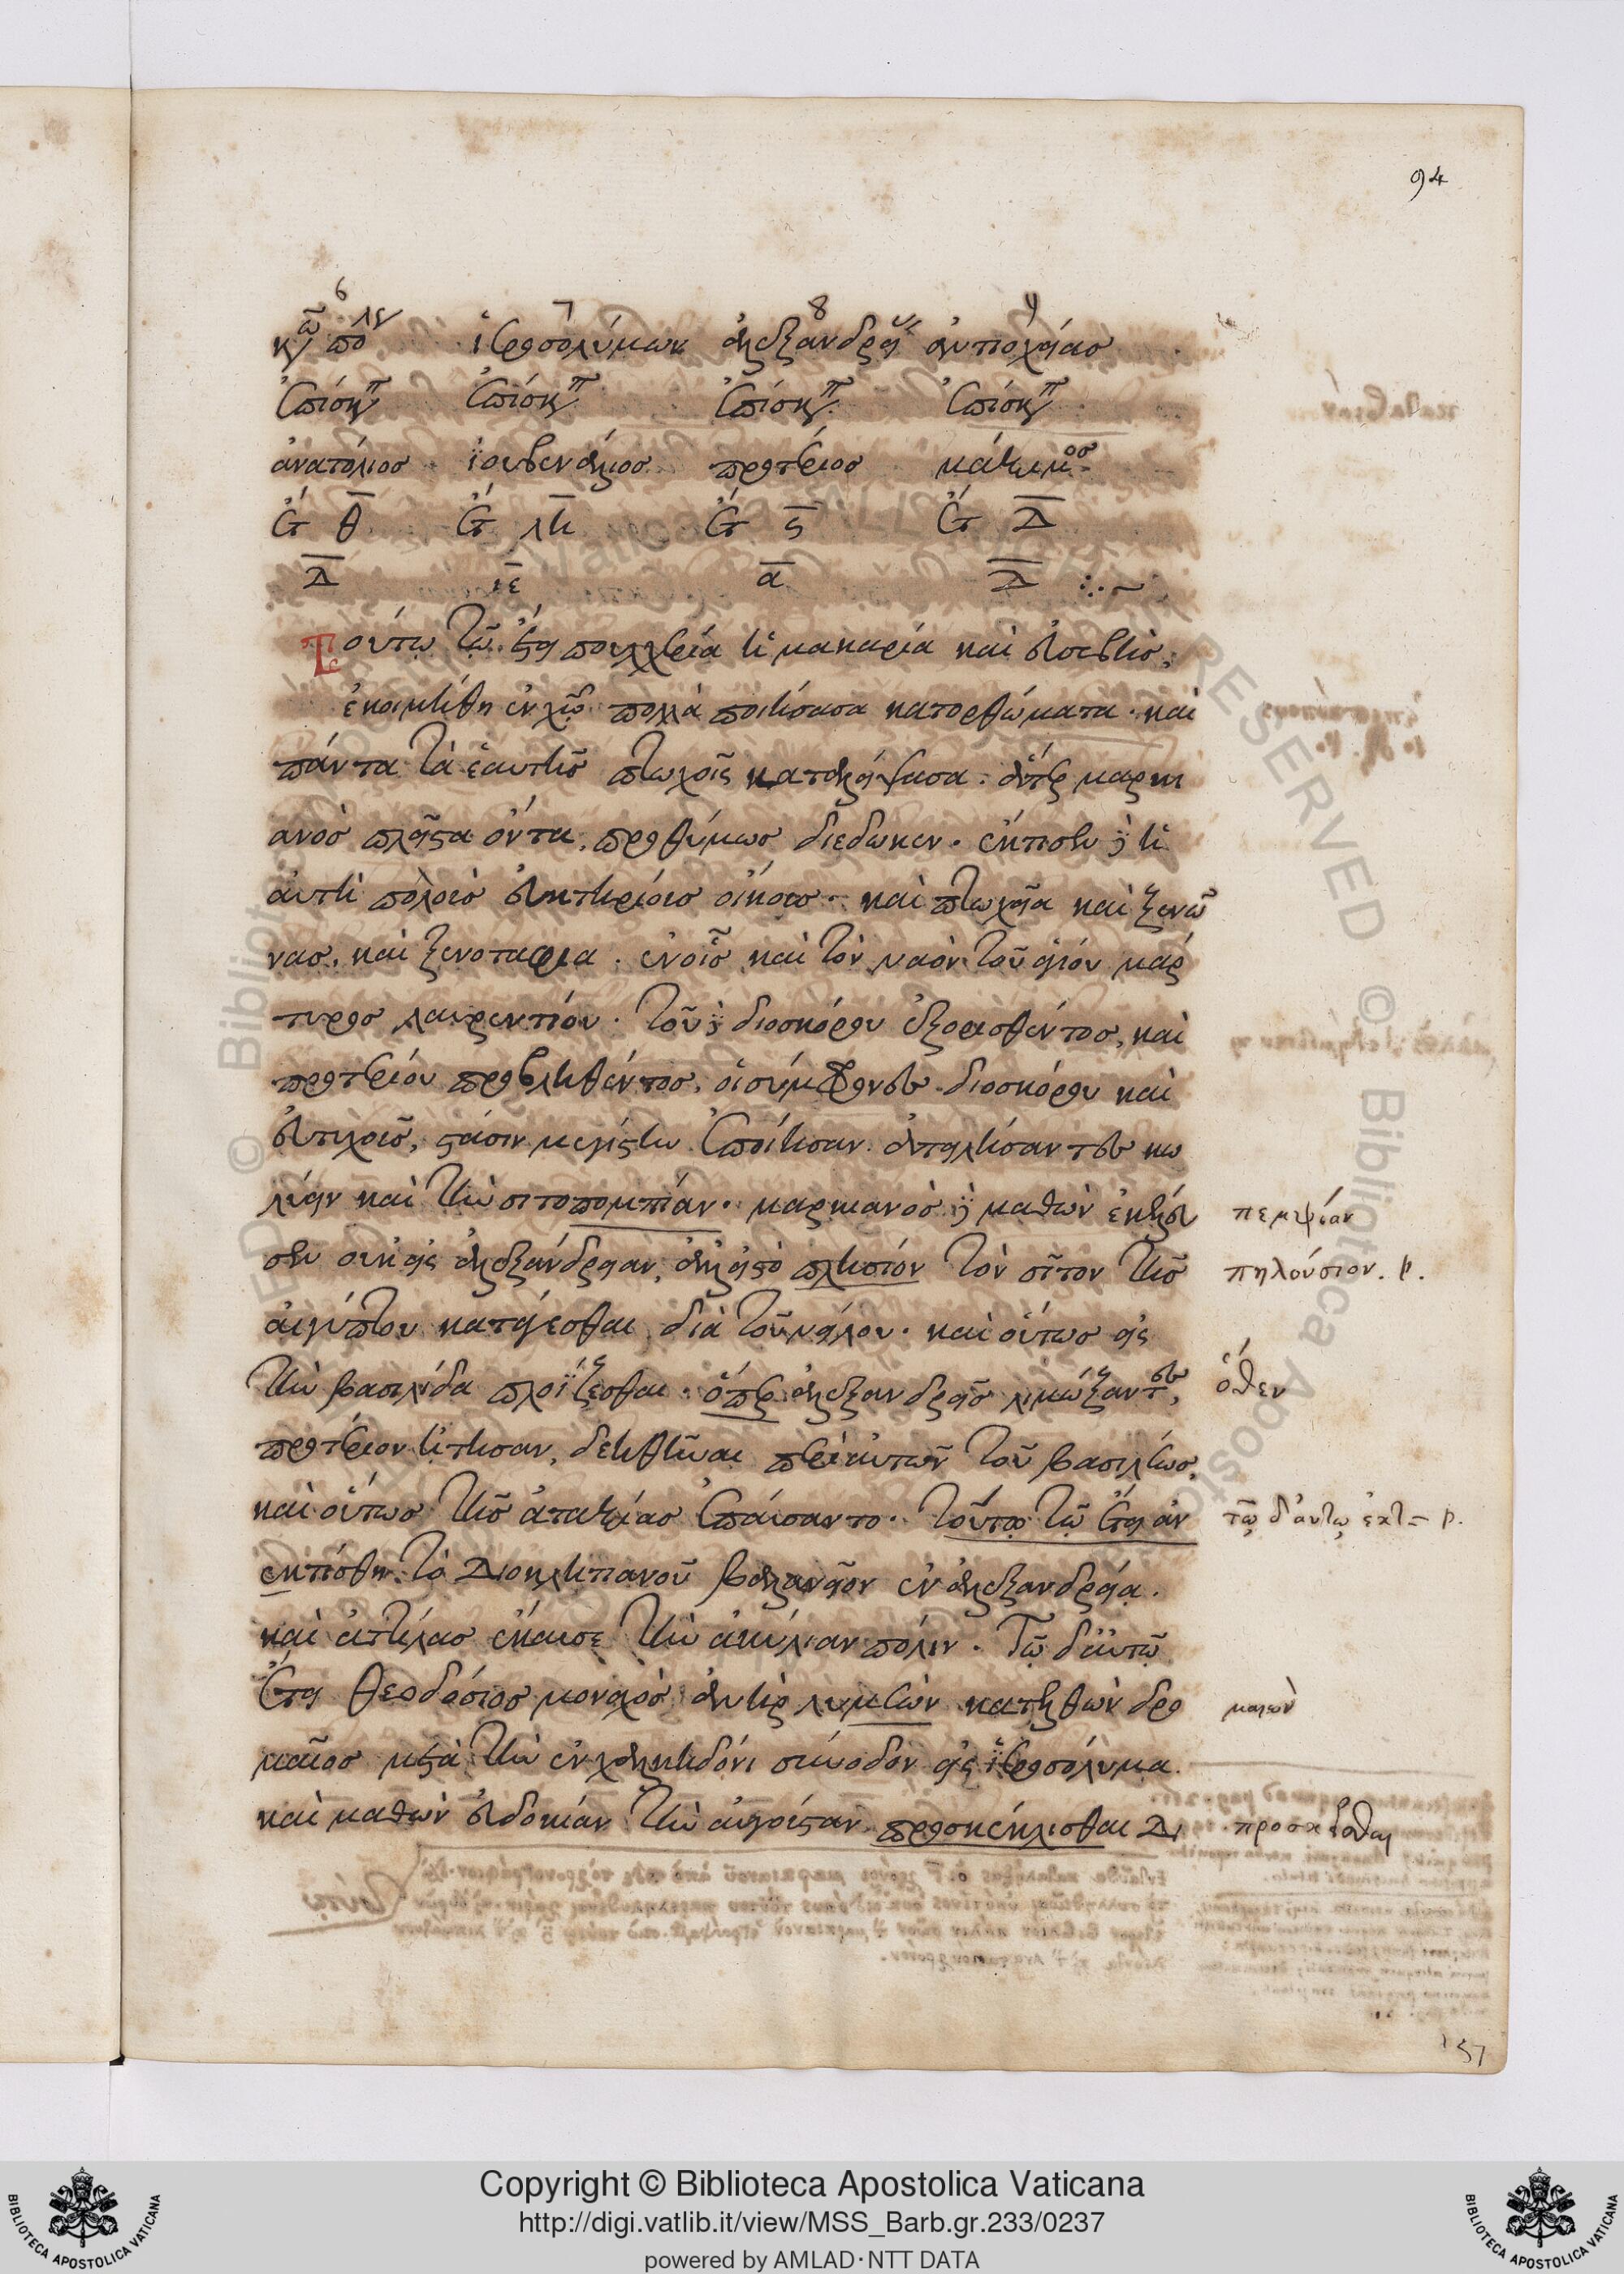 94
6 7 8 9
κων πολε ἱεροσολύμων ἀλεξανδρεί ἀντιοχείας
ἐπίσκπ ἐπίσκπ ἐπίσκπ ἐπίσκπ
ἀνατόλιος ἰουβενάλιος προτέριος μάξιμος
ἔτ θ ἔτ λη ἔτ ς ἔτ Δ
Δ ιε α Δ
Τούτω τῶ ἔτει πουλχερία ἡ μακαρία καὶ εὐσεβὴς,
ἐκοιμήθη ἐν χῶ πολλὰ ποιήσασα κατορθώματα. καὶ
πάντα τὰ ἑαυτῆς πτωχοῖς καταλείψασα. ἅπερ μαρκι
ανὸς πλεῖστα ὄντα, προθύμως διέδωκεν. ἔκτισεν δὲ ἡ
αὐτὴ πολλοὺς εὐκτηρίους οἴκους. καὶ πτωχεῖα καὶ ξενῶ
νας, καὶ ξενοταφια. ἐν οἷς καὶ τὸν ναὸν τοῦ ἁγίου μάρ
τυρος λαυρεντίου. τοῦ δὲ διοσκόρου ἐξορισθέντος, καὶ
προτερίου προβληθέντος, οἱ σύμφρονες διοσκόρου καὶ
εὐτυχοῦς, στάσιν μεγίστην ἐποίησαν. ἀπειλήσαντες κω
λύειν καὶ τὴν σιτοπομπίαν. μαρκιανὸς δὲ μαθὼν ἐκέλευ
σεν οὐκ εἰς ἀλεξάνδρειαν, ἀλλ' εἰς τὸ πλησίον τὸν σῖτον τῆς
αἰγύπτου κατάγεσθαι διὰ τοῦ νείλου. καὶ οὕτως εἰς
τὴν βασιλίδα πλοΐζεσθαι. ὅπερ ἀλεξανδρεῖς λιμώξαντες,
προτέριον ᾔτησαν, δεηθῆναι περὶ αὐτῶν τοῦ βασιλέως,
καὶ οὕτως τῆς ἀταξίας ἐπαύσαντο. τούτω τῶ ἔτει ἀν
εκτίσθη τὸ Διοκλητιανοῦ βαλανεῖον ἐν ἀλεξανδρεία.
καὶ ἀτήλας ἔκαυσε τὴν ἀκύλιαν πόλιν. Τῶ δ'αὐτῶ
ἔτει θεοδόσιος μοναχὸς ἀνὴρ λυμεὼν κατελθὼν δρο
μαῖος μετὰ τὴν ἐν χαλκηδόνι σύνοδον εἰς ἱεροσόλυμα.
καὶ μαθὼν εὐδοκίαν τὴν αὐγούσταν προσκέκλισθαι Δι
πεμψίαν
πηλούσιον. p.
ὅθεν
τῶ δ'αὐτῶ ἐκτ= p.
μαιὼν
προσκεῖσθαι
157
Copyright © Biblioteca Apostolica Vaticana
http://digi.vatlib.it/view/MSS_Barb.gr.233/0237
powered by AMLAD·NTT DATA
BIBLIOTECA APOSTOLICA VATICANA
BIBLIOTECA APOSTOLICA VATICANA